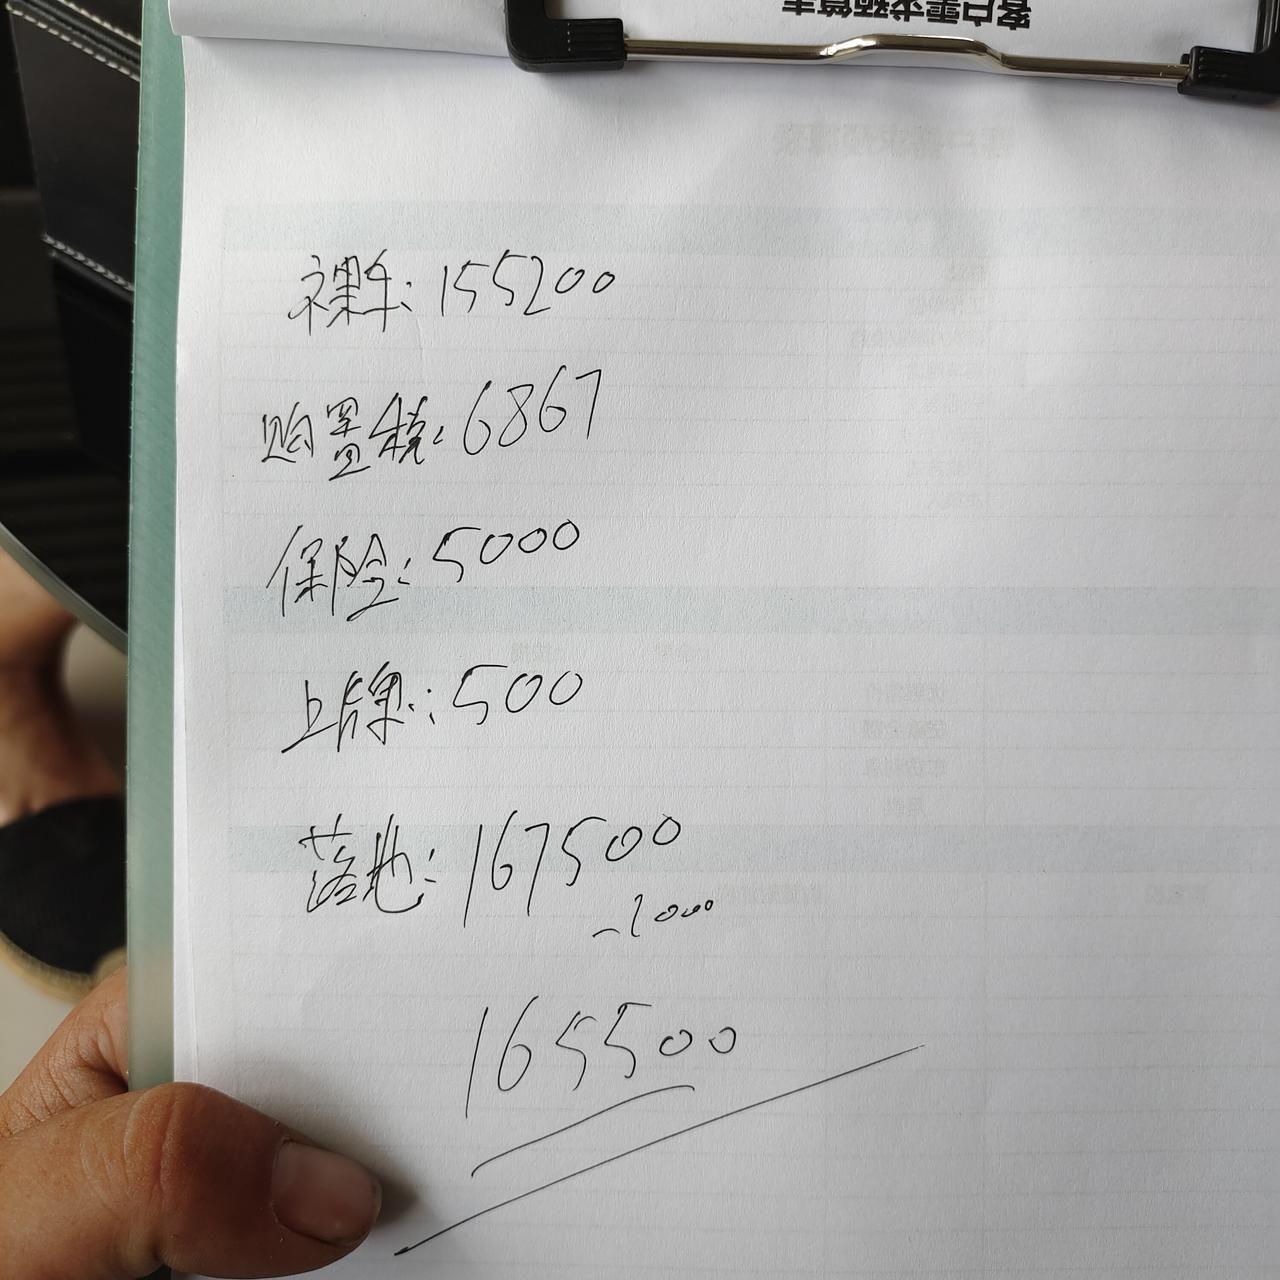 客户需求预算表
裸车: 155200
购置税: 6867
保险: 5000
上牌: 500
落地: 167500
-2000
165500